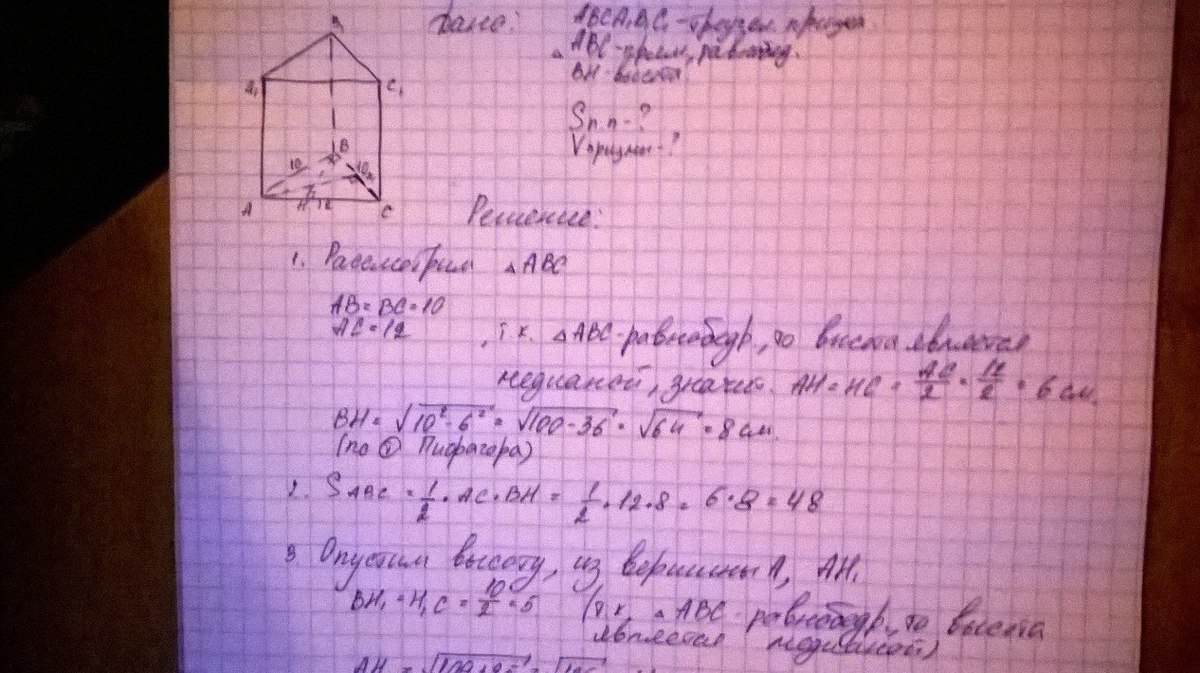 Дано: ABCA₁B₁C₁ - треуг. призма.
△ABC - прям, равнобед.
BH - высота
Sп.п - ?
Vпризмы - ?
B₁
A₁ C₁
B
10 10
A H 12 C
Решение:
1. Рассмотрим △ABC
AB = BC = 10
AC = 12 , т.к. △ABC - равнобедр, то высота является
медианой, значит. AH = HC = AC/2 = 12/2 = 6 см.
BH = √10² - 6² = √100 - 36 = √64 = 8 см.
(по Ⓣ Пифагора)
2. S ABC = 1/2 · AC · BH = 1/2 · 12 · 8 = 6 · 8 = 48
3 Опустим высоту, из вершины A, AH₁
BH₁ = H₁C = 10/2 = 5 (т.к. △ABC - равнобедр, то высота
является медианой)